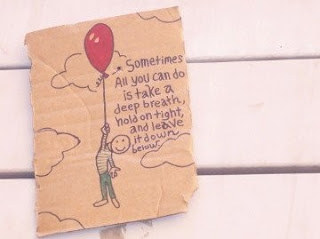 Sometimes
All you can do
is take a
deep breath,
hold on tight,
and leave
it down
below.